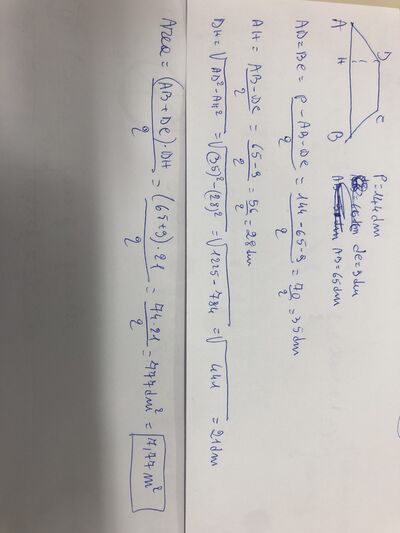 A
D
H
C
B
P=144dm
DC=9dm
AB=65dm
AD=BC= P-AB-DC/2 = 144-65-9/2 = 70/2 = 35dm
AH= AB-DC/2 = 65-9/2 = 56/2 = 28dm
DH= √AD²-AH² = √(35)²-(28)² = √1225-784 = √441 = 21dm
Area= (AB+DC)·DH/2 = (65+9)·21/2 = 74·21/2 = 777dm² = 7,77m²